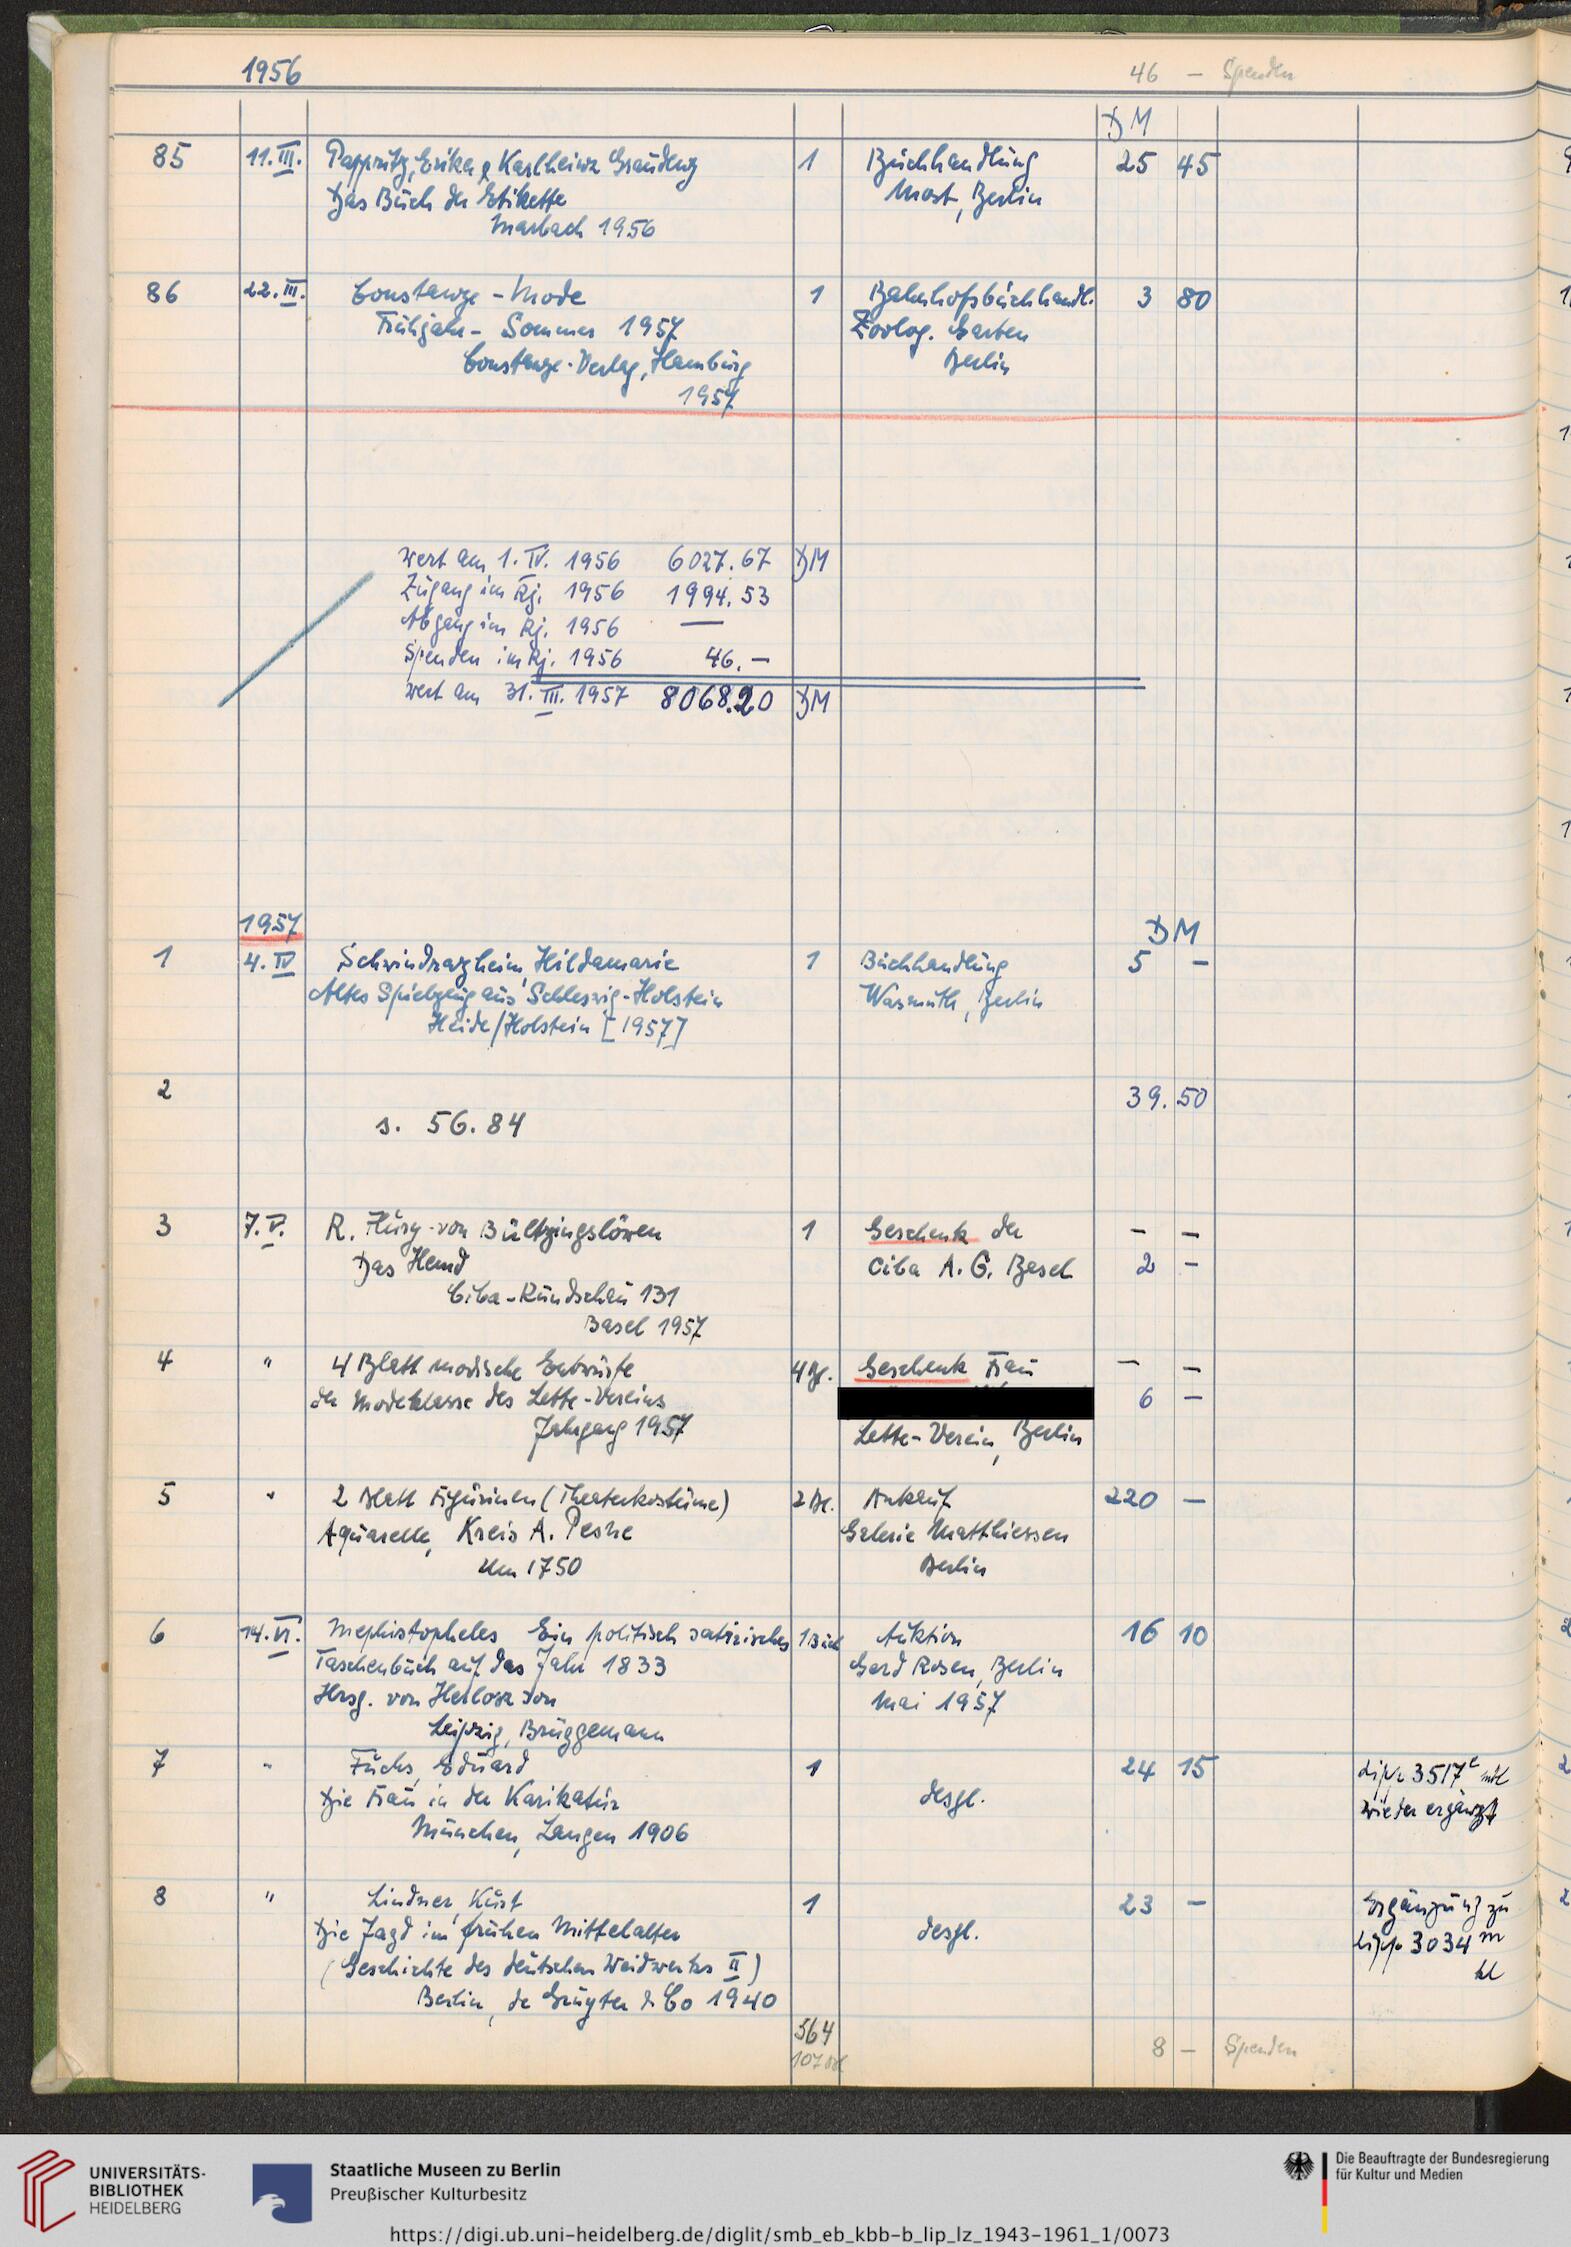 1956 46 – Spenden
DM
85 11.III. Pappritz, Erika & Karlheinz Graudenz 1 Buchhandlung 25 45
Das Buch der Etikette Most, Berlin
Marbach 1956
86 22.III. Constanze-Mode 1 Bahnhofsbuchhandl. 3 80
Frühjahr- Sommer 1957 Zoolog. Garten
Constanze-Verlag, Hamburg Berlin
1957
Wert am 1.IV. 1956 6027.67 DM
Zugang im Rj. 1956 1994.53
Abgang im Rj. 1956 —
Spenden im Rj. 1956 46.–
Wert am 31.III.1957 8068.20 DM
1957 DM
1 4.IV Schwindrazheim, Hildamarie 1 Buchhandlung 5 –
Altes Spielzeug aus Schleswig-Holstein Wasmuth, Berlin
Heide/Holstein [1957]
2 39.50
s. 56.84
3 7.V. R. Flury-von Bültzingslöwen 1 Geschenk der – –
Das Hemd Ciba A.G. Basel 2 –
Ciba-Rundschau 131
Basel 1957
4 " 4 Blatt modische Entwürfe 4 Bl. Geschenk Frau – –
der Modeklasse des Lette-Vereins 6 –
Jahrgang 1957 Lette-Verein, Berlin
5 " 2 Blatt Figurinen (Theaterkostüme) 2 Bl. Ankauf 220 –
Aquarelle, Kreis A. Pesne Galerie Matthiessen
Um 1750 Berlin
6 14.VI. Mephistopheles Ein politisch satirisches 1 Buch Auktion 16 10
Taschenbuch auf das Jahr 1833 Gerd Rosen, Berlin
Hrsg. von Herlosszon Mai 1957
Leipzig, Brüggemann
7 " Fuchs, Eduard 1 24 15 Lipp 3517
Die Frau in der Karikatur desgl. wieder ergänzt
München, Langen 1906
8 " Lindner, Kurt 1 23 – Ergänzung zu
Die Jagd im frühen Mittelalter desgl. Lipp 3034 m
(Geschichte des deutschen Weidwerks II)
Berlin, de Gruyter & Co 1940
364
107 Bl 8 – Spenden
UNIVERSITÄTS-
BIBLIOTHEK
HEIDELBERG
Staatliche Museen zu Berlin
Preußischer Kulturbesitz
Die Beauftragte der Bundesregierung
für Kultur und Medien
https://digi.ub.uni-heidelberg.de/diglit/smb_eb_kbb-b_lip_lz_1943-1961_1/0073